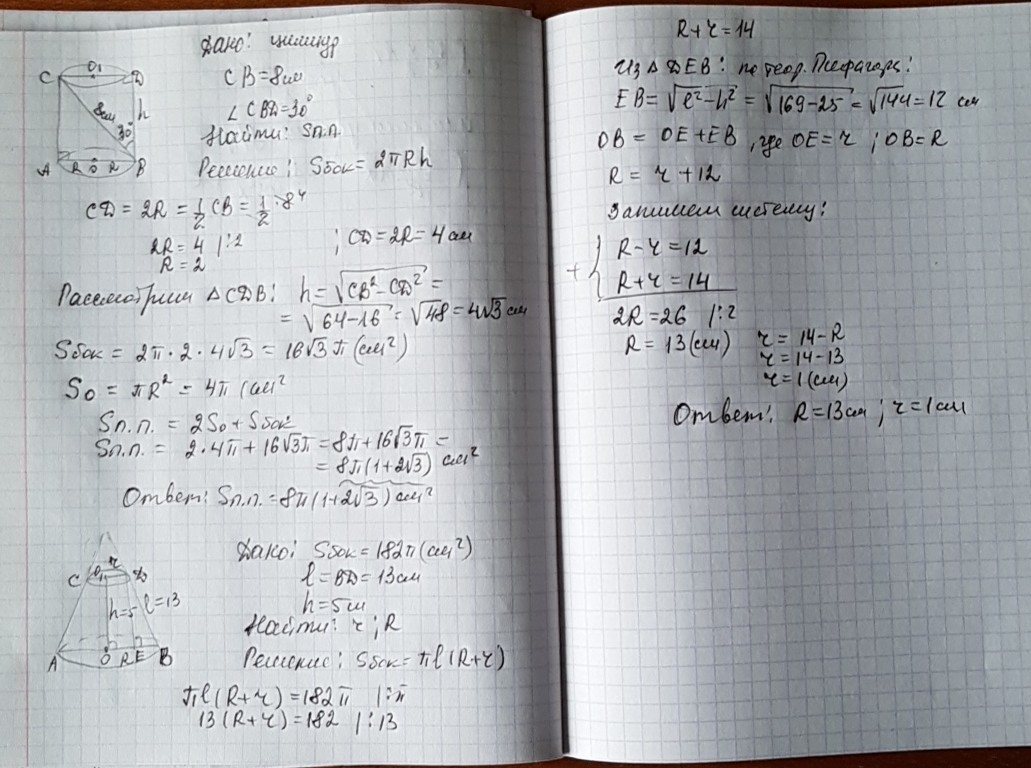 Дано: цилиндр
CB=8см
∠CBD=30°
Найти: Sп.п.
Решение: Sбок=2πRh
C O₁ D
8см h
30°
A R O R B
CD = 2R = 1/2 CB = 1/2 · 8 4
2R = 4 |:2 ; CD = 2R = 4 см
R = 2
Рассмотрим △CDB: h = √CB²-CD² =
= √64-16 = √48 = 4√3 см
Sбок = 2π · 2 · 4√3 = 16√3 π (см²)
So = πR² = 4π (см²
Sп.п. = 2So + Sбок
Sп.п. = 2·4π + 16√3π = 8π+16√3π =
= 8π(1+2√3) см²
Ответ: Sп.п. = 8π(1+2√3) см²
Дано: Sбок = 182π (см²)
l = BD = 13см
h = 5см
Найти: r ; R
Решение: Sбок = πl (R+r)
C O₁ r D
h=5 l=13
A O R E B
πl (R+r) = 182π |:π
13 (R+r) = 182 |:13
R+r = 14
Из △DEB: по теор. Пифагора:
EB = √l²-h² = √169-25 = √144 = 12 см
OB = OE+EB, где OE = r ; OB = R
R = r + 12
Запишем систему:
+ { R - r = 12
R + r = 14
2R = 26 |:2
R = 13 (см) r = 14-R
r = 14-13
r = 1 (см)
Ответ: R = 13см ; r = 1см